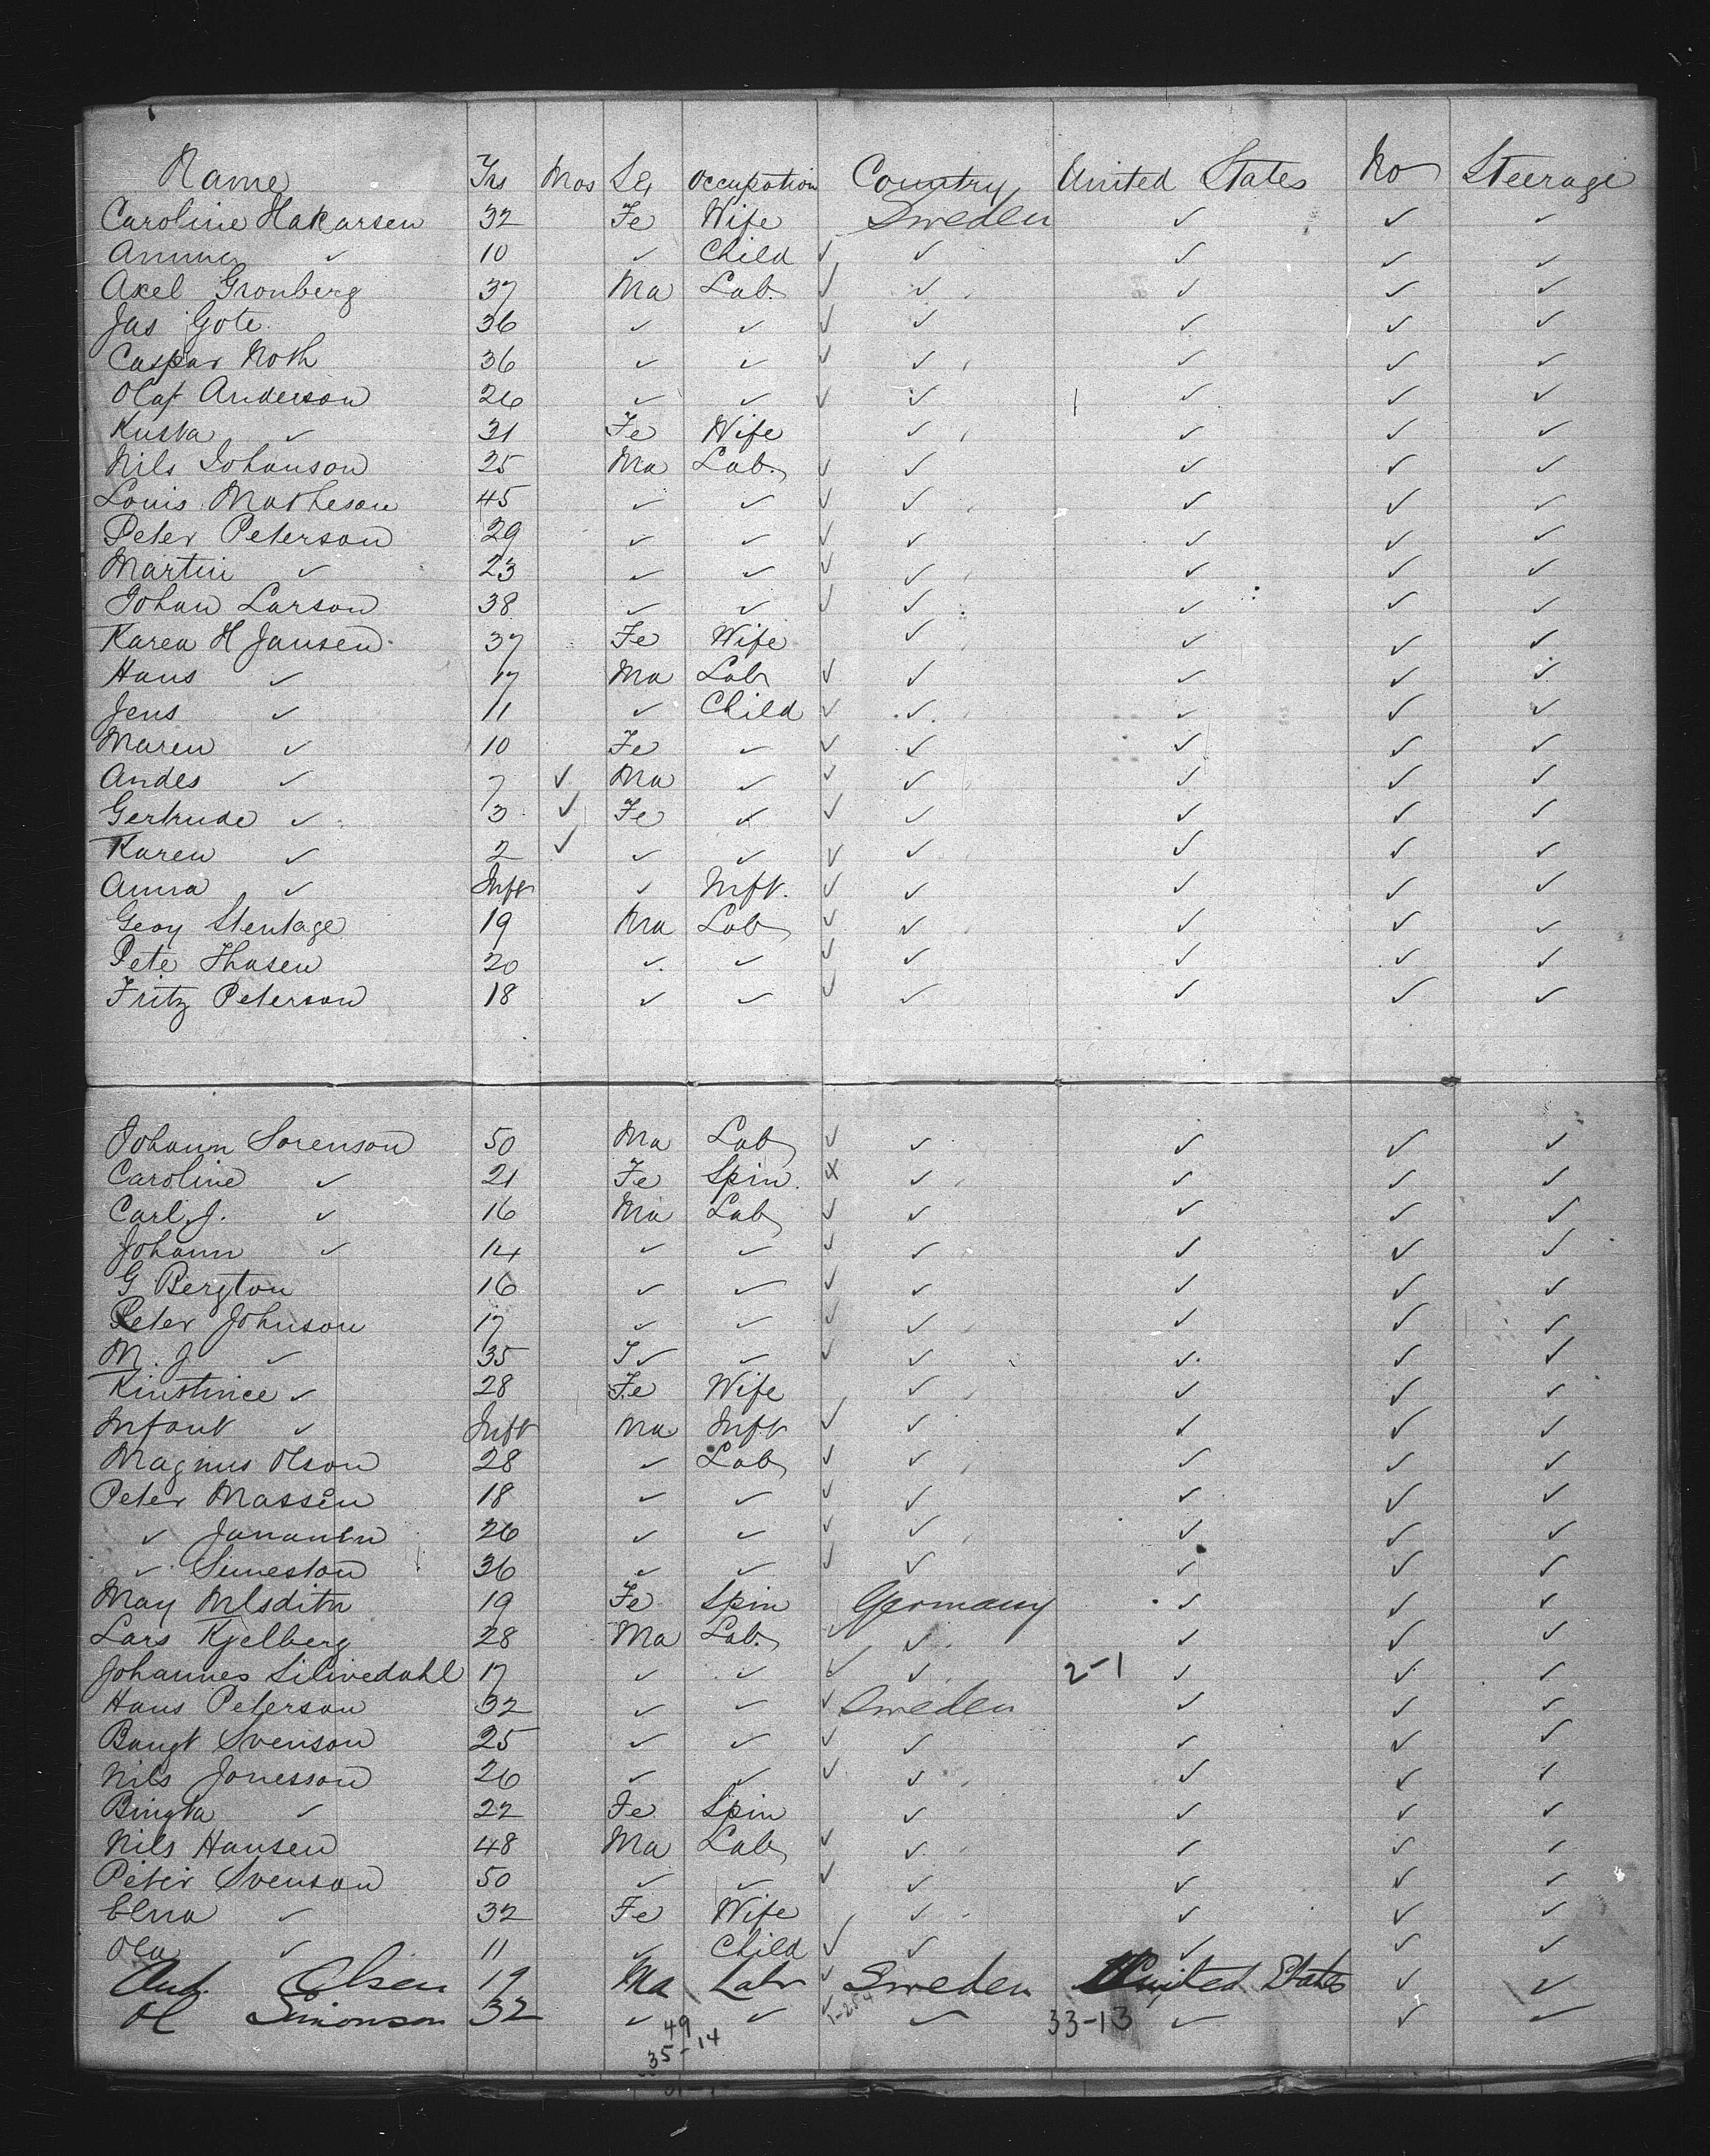 Name Yrs Mos Sex Occupation Country United States No Steerage
Caroline Hakarsen 32 Fe Wife Sweden ✓ ✓ ✓
Anna ✓ 10 ✓ Child ✓ ✓ ✓ ✓ ✓
Axel Gronberg 37 Ma Lab. ✓ ✓ ✓ ✓ ✓
Jas Gote 36 ✓ ✓ ✓ ✓ ✓ ✓ ✓
Caspar Noth 36 ✓ ✓ ✓ ✓ ✓ ✓ ✓
Olaf Anderson 26 ✓ ✓ ✓ ✓ ✓ ✓ ✓
Kusta ✓ 31 Fe Wife ✓ ✓ ✓ ✓
Nils Johanson 25 Ma Lab. ✓ ✓ ✓ ✓ ✓
Louis Matheson 45 ✓ ✓ ✓ ✓ ✓ ✓ ✓
Peter Peterson 29 ✓ ✓ ✓ ✓ ✓ ✓ ✓
Martin ✓ 23 ✓ ✓ ✓ ✓ ✓ ✓ ✓
Johan Larson 38 ✓ ✓ ✓ ✓ ✓ ✓ ✓
Karea H Jansen 37 Fe Wife ✓ ✓ ✓ ✓
Hans ✓ 17 Ma Lab ✓ ✓ ✓ ✓ ✓
Jens ✓ 11 ✓ Child ✓ ✓ ✓ ✓ ✓
Maren ✓ 10 Fe ✓ ✓ ✓ ✓ ✓ ✓
Andes ✓ 7 ✓ Ma ✓ ✓ ✓ ✓ ✓ ✓
Gertrude ✓ 3 ✓ Fe ✓ ✓ ✓ ✓ ✓ ✓
Karen ✓ 2 ✓ ✓ ✓ ✓ ✓ ✓ ✓ ✓
Anna ✓ Inft ✓ Inft. ✓ ✓ ✓ ✓ ✓
Geoy Stentage 19 Ma Lab ✓ ✓ ✓ ✓ ✓
Pete Thasen 20 ✓ ✓ ✓ ✓ ✓ ✓ ✓
Fritz Peterson 18 ✓ ✓ ✓ ✓ ✓ ✓ ✓
Johann Sorenson 50 Ma Lab ✓ ✓ ✓ ✓ ✓
Caroline ✓ 21 Fe Spin. x ✓ ✓ ✓ ✓
Carl J. ✓ 16 Ma Lab ✓ ✓ ✓ ✓ ✓
Johann ✓ 14 ✓ ✓ ✓ ✓ ✓ ✓ ✓
G Bergton 16 ✓ ✓ ✓ ✓ ✓ ✓ ✓
Peter Johnson 17 ✓ ✓ ✓ ✓ ✓ ✓ ✓
M. J ✓ 35 ✓ ✓ ✓ ✓ ✓ ✓ ✓
Kinstince ✓ 28 Fe Wife ✓ ✓ ✓ ✓
Infant ✓ Inft Ma Inft ✓ ✓ ✓ ✓ ✓
Magnus Olson 28 ✓ Lab ✓ ✓ ✓ ✓ ✓
Peter Massen 18 ✓ ✓ ✓ ✓ ✓ ✓ ✓
✓ 26 ✓ ✓ ✓ ✓ ✓ ✓ ✓
✓ Simeston 36 ✓ ✓ ✓ ✓ ✓ ✓ ✓
May 19 Fe Spin Germany ✓ ✓ ✓
Lars Kjelberg 28 Ma Lab. ✓ ✓ ✓ ✓ ✓
Johannes Silivedahl 17 ✓ ✓ ✓ ✓ 2-1 ✓ ✓ ✓
Hans Peterson 32 ✓ ✓ ✓ Sweden ✓ ✓ ✓
Bangt Svenson 25 ✓ ✓ ✓ ✓ ✓ ✓ ✓
Nils Jonesson 26 ✓ ✓ ✓ ✓ ✓ ✓ ✓
Bingta ✓ 22 Fe Spin ✓ ✓ ✓ ✓
Nils Hansen 48 Ma Lab ✓ ✓ ✓ ✓ ✓
Peter Svenson 50 ✓ ✓ ✓ ✓ ✓ ✓ ✓
Elna ✓ 32 Fe Wife ✓ ✓ ✓ ✓
Ola ✓ 11 ✓ Child ✓ ✓ ✓ ✓ ✓
And. Olsen 19 Ma Labr ✓ Sweden United States ✓ ✓
Ol Simonson 32 ✓ ✓ ✓ ✓ 33-13 ✓ ✓ ✓
49
35-14